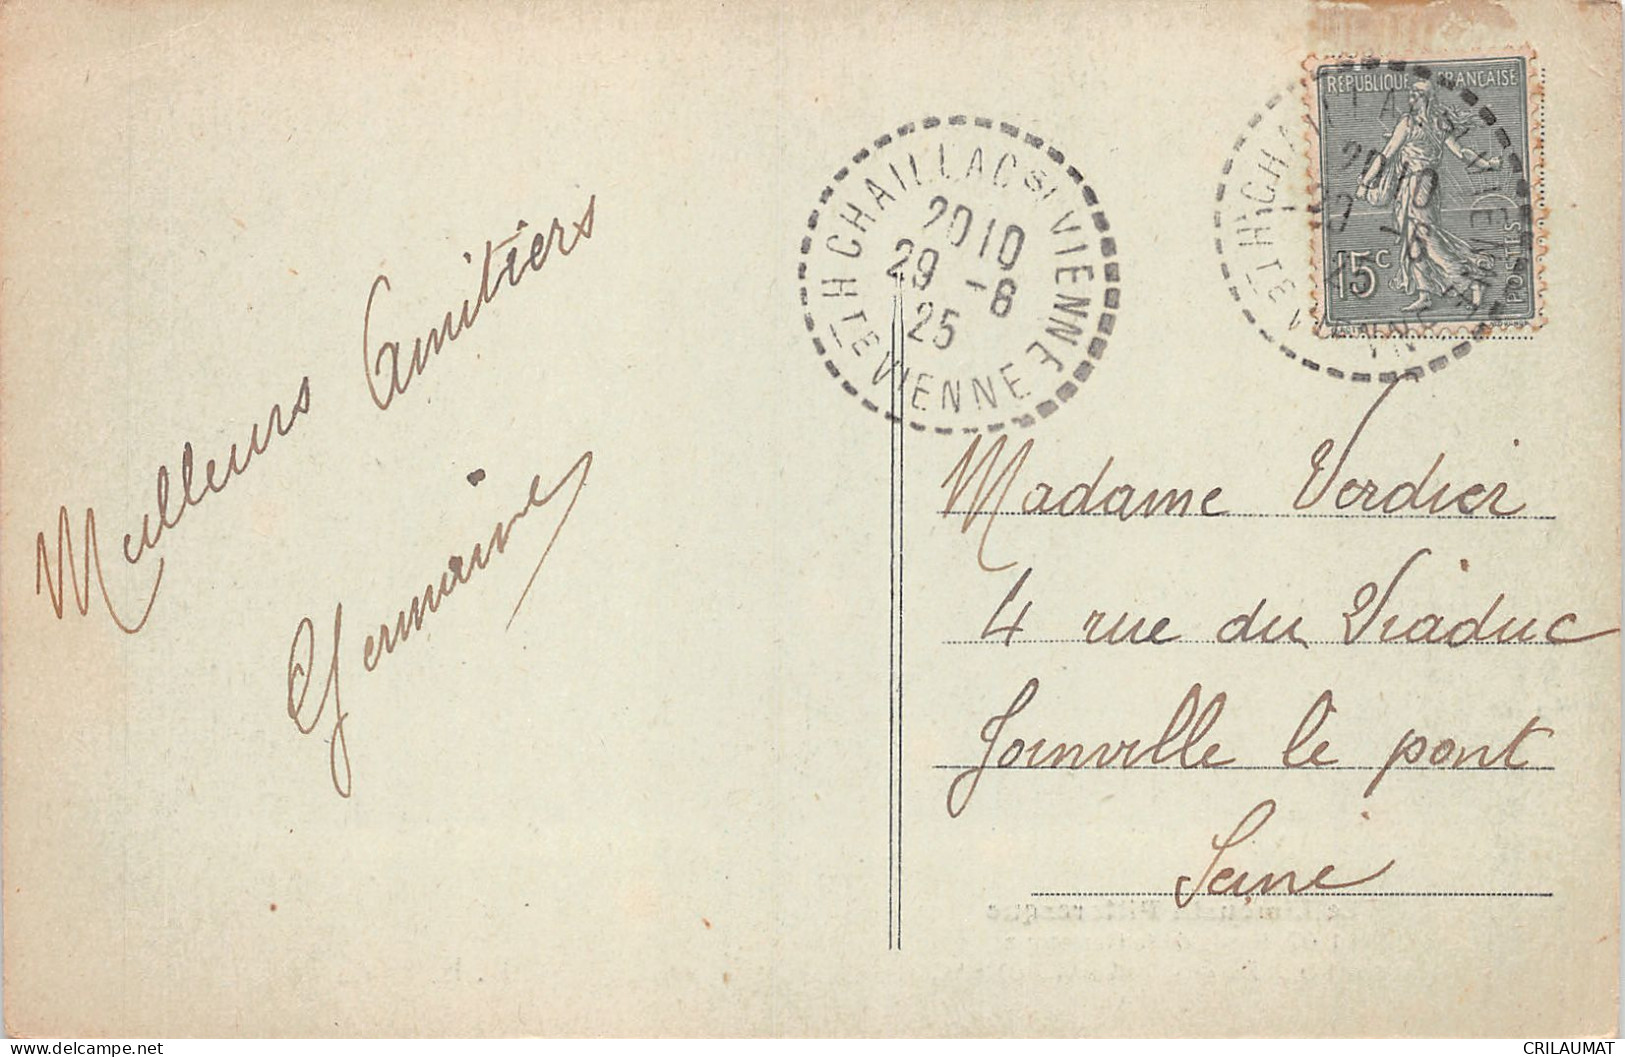 Meilleurs Amitiers
Germaine
CHAILLAC S/ VIENNE
2010
29 -6
25
HTE VIENNE
RÉPUBLIQUE FRANÇAISE
15c
POSTES
CHAILLAC S/ VIENNE
2010
-6
HTE VIENNE
Madame Verdier
4 rue du Viaduc
Joinville le pont
Seine
delcampe.net
CRILAUMAT